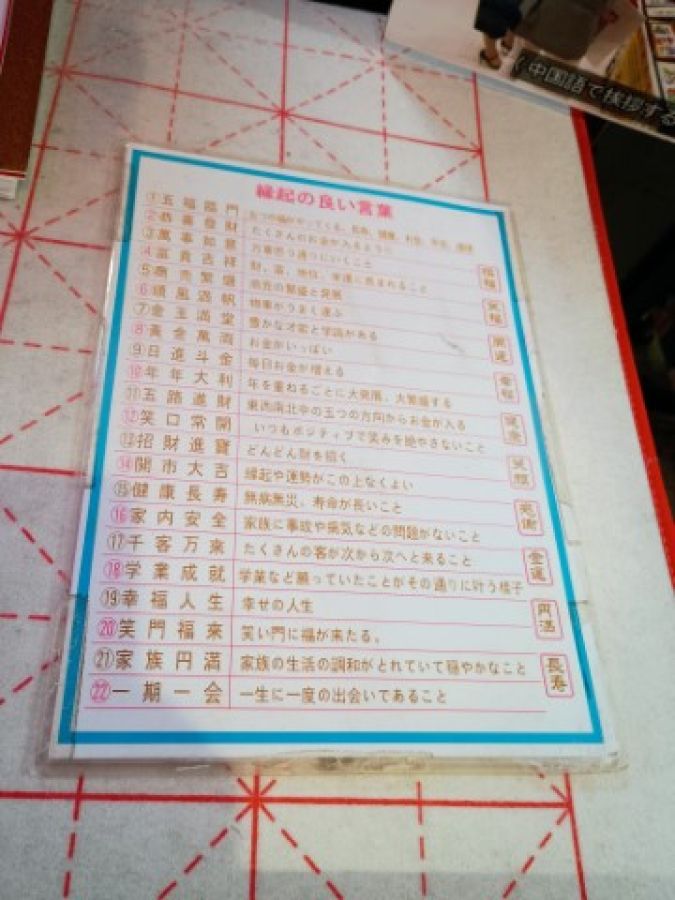 中国語で挨拶する
縁起の良い言葉
①五福臨門
②恭喜發財 たくさんのお金が入るように
③萬事如意 万事思う通りにいくこと
④富貴吉祥
⑤商売繁盛 商売の繁盛と発展
⑥順風満帆 物事がうまく運ぶ
⑦金玉満堂 豊かな才能と学識がある
⑧黃金萬両 お金がいっぱい
⑨日進斗金 毎日お金が増える
⑩年年大利 年を重ねるごとに大発展、大繁盛する
⑪五路進財 東西南北中の五つの方向からお金が入る
⑫笑口常開 いつもポジティブで笑みを絶やさないこと
⑬招財進寶 どんどん財を招く
⑭開市大吉 縁起や運勢がこの上なくよい
⑮健康長寿 無病無災、寿命が長いこと
⑯家内安全 家族に事故や病気などの問題がないこと
⑰千客万来 たくさんの客が次から次へと来ること
⑱学業成就 学業など願っていたことがその通りに叶う様子
⑲幸福人生 幸せの人生
⑳笑門福来 笑い門に福が来たる。
㉑家族円満 家族の生活の調和がとれていて穏やかなこと
㉒一期一会 一生に一度の出会いであること
開運
幸福
笑顔
金運
円満
長寿